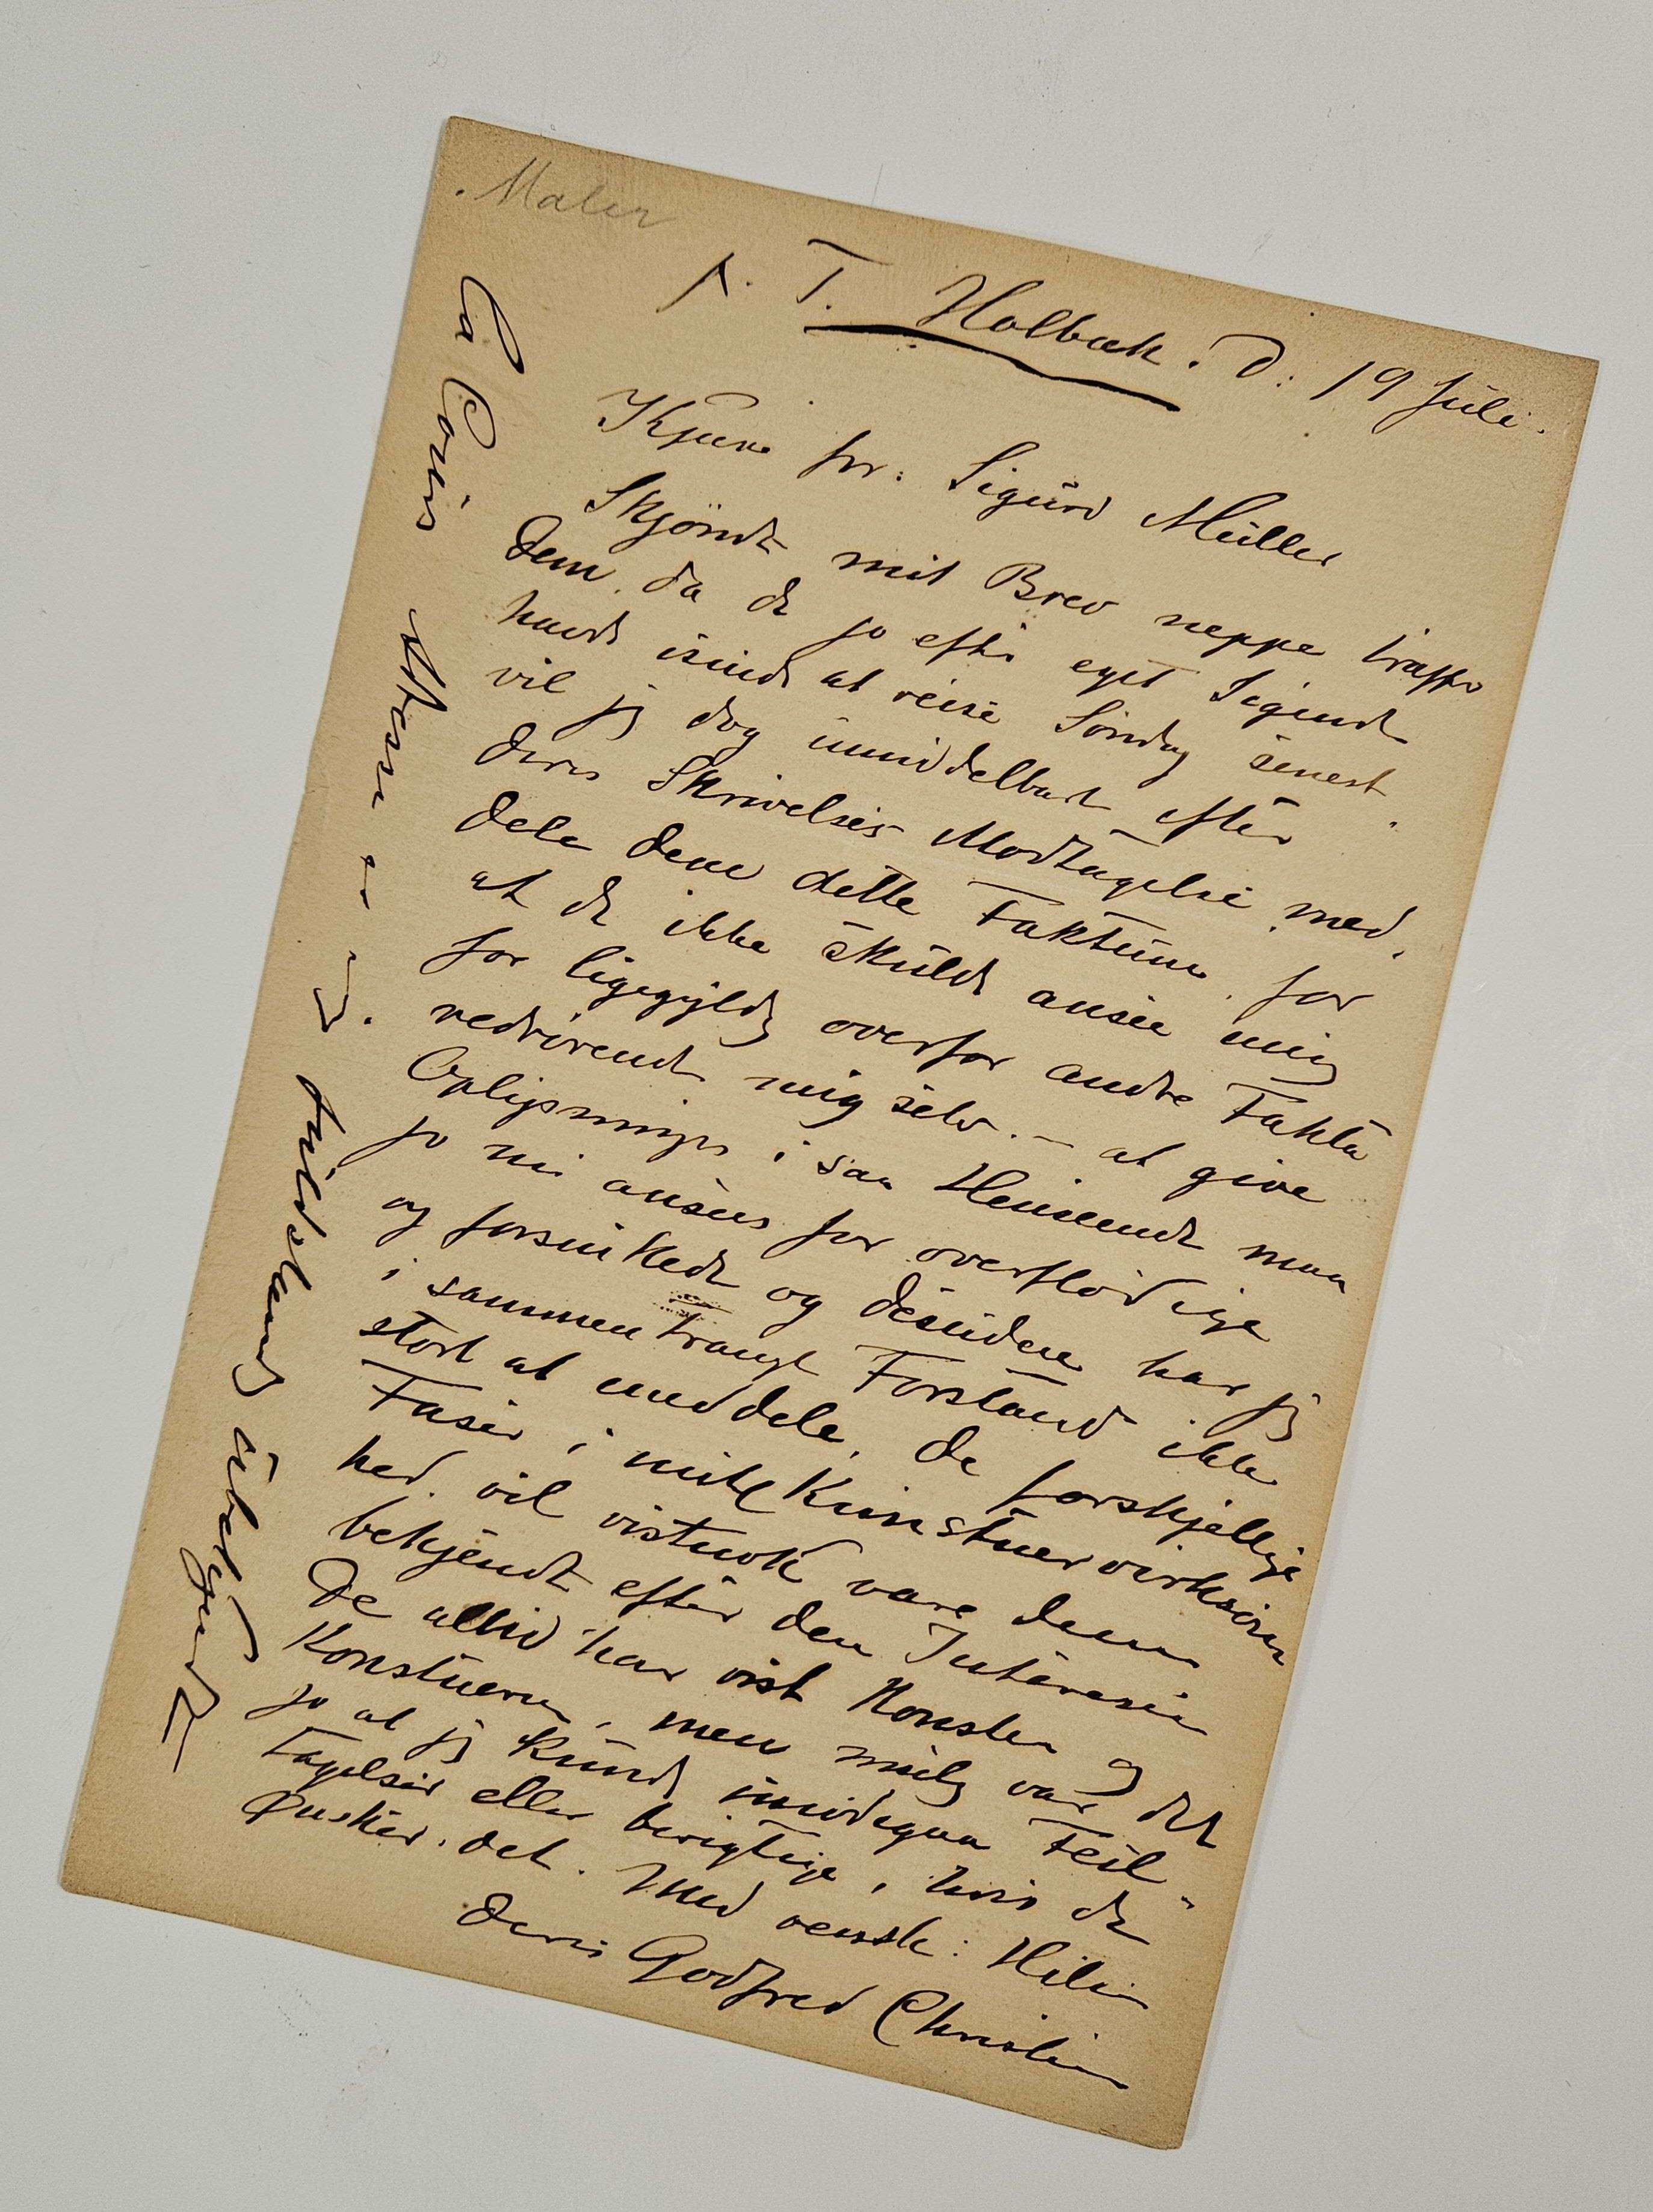 Maler
p. T. Holbæk. d: 19 Juli.
Kjære Hr: Sigurd Müller
Skjöndt mit Brev neppe træffe
Dem, da De jo efter eget Sigende
havde isinde at reise Söndag senest
vil jeg dog umiddelbart efter
Deres Skrivelses Modtagelse med-
dele Dem dette Faktum, for
at De ikke skulde ansee mig
for ligegyldig overfor andre Fakta
vedrörende mig selv. – at give
Oplysninger i saa Henseende maa
jo nu ansees for overflödige
og forsinkede og desuden har jeg
i sammentrængt Forstand ikke
stort at meddele, De forskjellige
Faser i mit Kunstnervirksom
hed vil vistnok være Dem
bekjendt efter den Interesse
De altid har vist Konsten og
Konstnerne, men mulig var det
jo at jeg kunde imödegaa Feil-
tagelser eller berigtige, hvis De
önsker det. Med vensk: Hilsen
Deres Godfred Christensen
Adressen er jeg fuldstændig ubekjendt